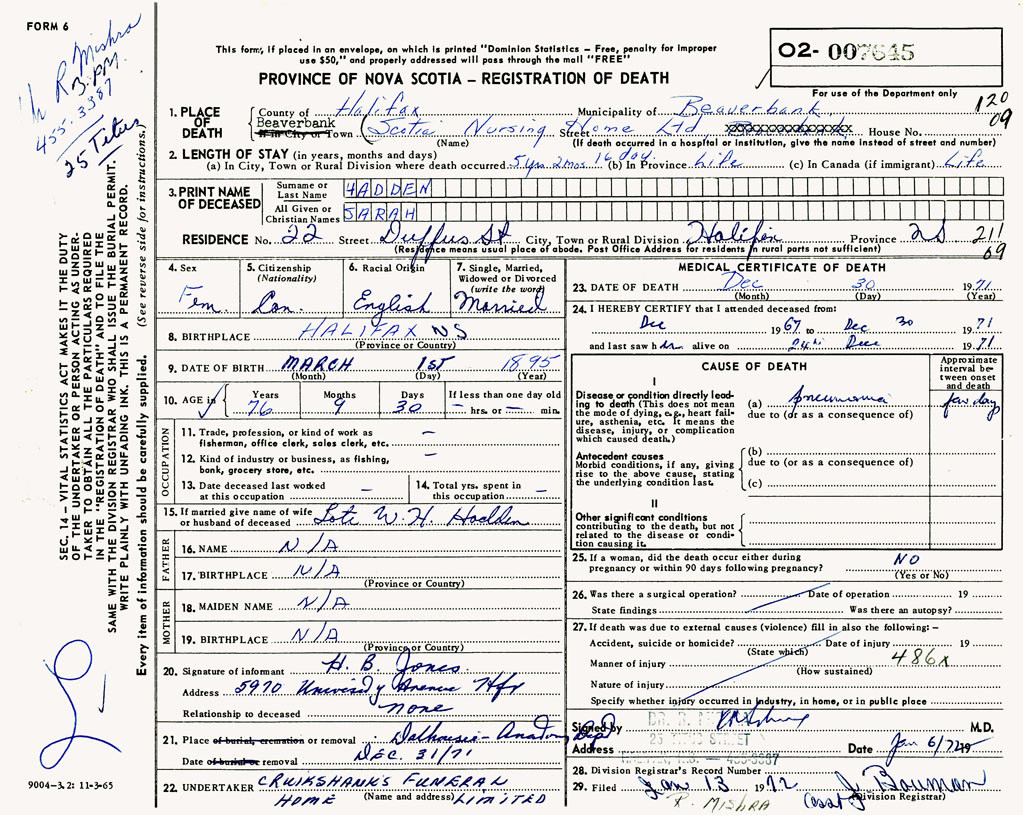 FORM 6
Dr R Mishra
3 pm
455-3387
25 Titus
This form, if placed in an envelope, on which is printed "Dominion Statistics – Free, penalty for improper
use $50," and properly addressed will pass through the mail "FREE"
PROVINCE OF NOVA SCOTIA – REGISTRATION OF DEATH
02- 007645
For use of the Department only
120
09
1. PLACE OF DEATH
County of Halifax Municipality of Beaverbank
Beaverbank
If in City or Town (Scotia Nursing Street Home Ltd, House No.
(Name) (If death occurred in a hospital or institution, give the name instead of street and number)
2. LENGTH OF STAY (in years, months and days)
(a) In City, Town or Rural Division where death occurred 5 yrs 2 mos 16 day. (b) In Province Life (c) In Canada (if immigrant) Life
3. PRINT NAME OF DECEASED
Surname or Last Name HADDEN
All Given or Christian Names SARAH
RESIDENCE No. 22 Street Duffus St City, Town or Rural Division Halifax Province NS
(Residence means usual place of abode. Post Office Address for residents in rural parts not sufficient)
211
09
4. Sex Fem.
5. Citizenship (Nationality) Can.
6. Racial Origin English
7. Single, Married, Widowed or Divorced (write the word) Married
8. BIRTHPLACE HALIFAX NS
(Province or Country)
9. DATE OF BIRTH MARCH 1st 1895
(Month) (Day) (Year)
10. AGE in Years 76 Months 9 Days 30 If less than one day old – hrs. or – min.
OCCUPATION
11. Trade, profession, or kind of work as fisherman, office clerk, sales clerk, etc. –
12. Kind of industry or business, as fishing, bonk, grocery store, etc. –
13. Date deceased last worked at this occupation –
14. Total yrs. spent in this occupation –
15. If married give name of wife or husband of deceased Late W. H. Hadden
FATHER
16. NAME N/A
17. BIRTHPLACE N/A
(Province or Country)
MOTHER
18. MAIDEN NAME N/A
19. BIRTHPLACE N/A
(Province or Country)
20. Signature of informant H. B. Jones
Address 5970 University Avenue Hfx
Relationship to deceased none
21. Place of burial, cremation or removal Dalhousie - Anatomy Dept
Date of burial or removal DEC. 31/71
22. UNDERTAKER CRUIKSHANKS FUNERAL
HOME (Name and address) LIMITED
MEDICAL CERTIFICATE OF DEATH
23. DATE OF DEATH Dec 30 1971
(Month) (Day) (Year)
24. I HEREBY CERTIFY that I attended deceased from:
Dec 1967 to Dec 30 1971
and last saw her alive on 24th Dec 1971
CAUSE OF DEATH
Approximate interval between onset and death
I
Disease or condition directly leading to death (This does not mean the mode of dying, e.g., heart failure, asthenia, etc. It means the disease, injury, or complication which caused death.)
(a) pneumonia few day
due to (or as a consequence of)
Antecedent causes
Morbid conditions, if any, giving rise to the above cause, stating the underlying condition last.
(b)
due to (or as a consequence of)
(c)
II
Other significant conditions contributing to the death, but not related to the disease or condition causing it.
25. If a woman, did the death occur either during pregnancy or within 90 days following pregnancy? NO
(Yes or No)
26. Was there a surgical operation? Date of operation 19
State findings Was there an autopsy?
27. If death was due to external causes (violence) fill in also the following: –
Accident, suicide or homicide? Date of injury 19
(State which)
486x
Manner of injury
(How sustained)
Nature of injury
Specify whether injury occurred in industry, in home, or in public place
Signed by M.D.
Address Date Jan 6/72 19
28. Division Registrar's Record Number
29. Filed Jan 13 1972 J. Bauman
R. MISHRA (Division Registrar)
SEC. 14 – VITAL STATISTICS ACT MAKES IT THE DUTY
OF THE UNDERTAKER OR PERSON ACTING AS UNDER-
TAKER TO OBTAIN ALL THE PARTICULARS REQUIRED
IN THE "REGISTRATION OF DEATH" AND TO FILE THE
SAME WITH THE DIVISION REGISTRAR WHO SHALL ISSUE THE BURIAL PERMIT.
WRITE PLAINLY WITH UNFADING INK. THIS IS A PERMANENT RECORD.
Every item of information should be carefully supplied. (See reverse side for instructions.)
9004-3.2: 11-3-65